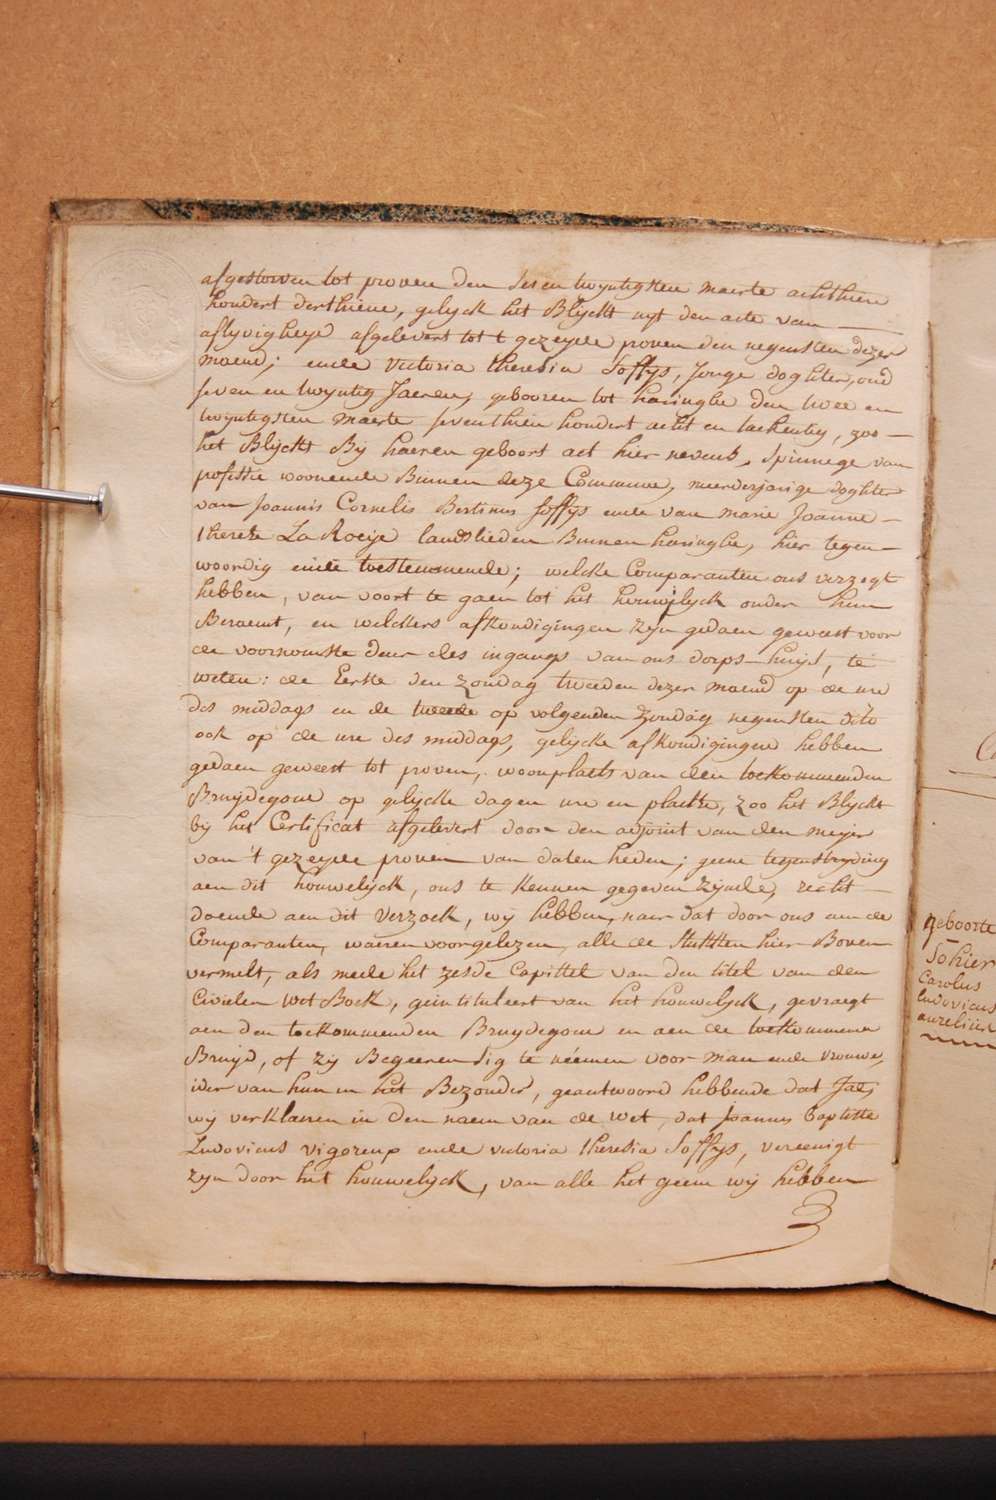 afgestorven tot proven den ses en twyntigsten maerte achthien
hondert derthiene, gelyck het Blyckt uyt den acte van
aflyvigheyd afgelevert tot t gezeyde proven den negensten dezer
maend; ende Victoria Theresia Soffys, Jonge doghter, oud
seven en twyntig Jaeren, gebooren tot haringhe den twee en
twyntigsten maerte seventhien hondert acht en tachentig, zoo
het Blyckt By haeren geboort act hier nevens, Spinnege van
professie woonende Binnen deze Commune, meerderjarige doghter
van Joannis Cornelis Bertinus Soffys ende van marie Joanne
Thereze La Roeije landslieden Binnen haringhe, hier tegen-
woordig ende toestemmende; welcke Comparanten ons verzogt
hebben, van voort te gaen tot het houwelyck onder hun
Beraemt, en welckers afkondigingen zyn gedaen geweest voor
de voornomste deur des ingangs van ons dorps-huys, te
weten: de Eerste den Zondag tweeden dezer maend op de ure
des middags en de tweede op volgenden Zondag negensten dito
ook op de ure des middags, gelycke afkondigingen hebben
gedaen geweest tot proven, woonplaets van den toekommenden
Bruydegom op gelycke dagen ure en plaetze, zoo het Blyckt
by het Certificat afgelevert door den adjoint van den meyer
van 't gezeyde proven van daten heden; geene tegenstryding
aen dit houwelyck, ons te kennen gegeven zynde, recht
doende aen dit verzoek, wy hebben, naer dat door ons aen de
Comparanten, waeren voorgelezen, alle de stukken hier-Boven
vermelt, als mede het zesde Capittel van den titel van den
Civielen wet Boek, geintituleert van het houwelyck, gevraegt
aen den toekommenden Bruydegom en aen de toekommende
Bruyd, of zy Begeeren sig te néemen voor man ende vrouwe,
ider van hun in het Bezonder, geantwoord hebbende dat Jae,
wy verklaeren in den naem van de wet, dat Joannes Baptiste
Ludovicus vigoreup ende victoria theresia Soffys, vereenigt
zyn door het houwelyck, van alle het geene wy hebben
geboorte
Sohier
Carolus
ludovicus
aurelius